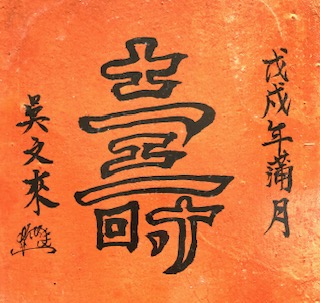 戊戌年蒲月
壽
吳文來